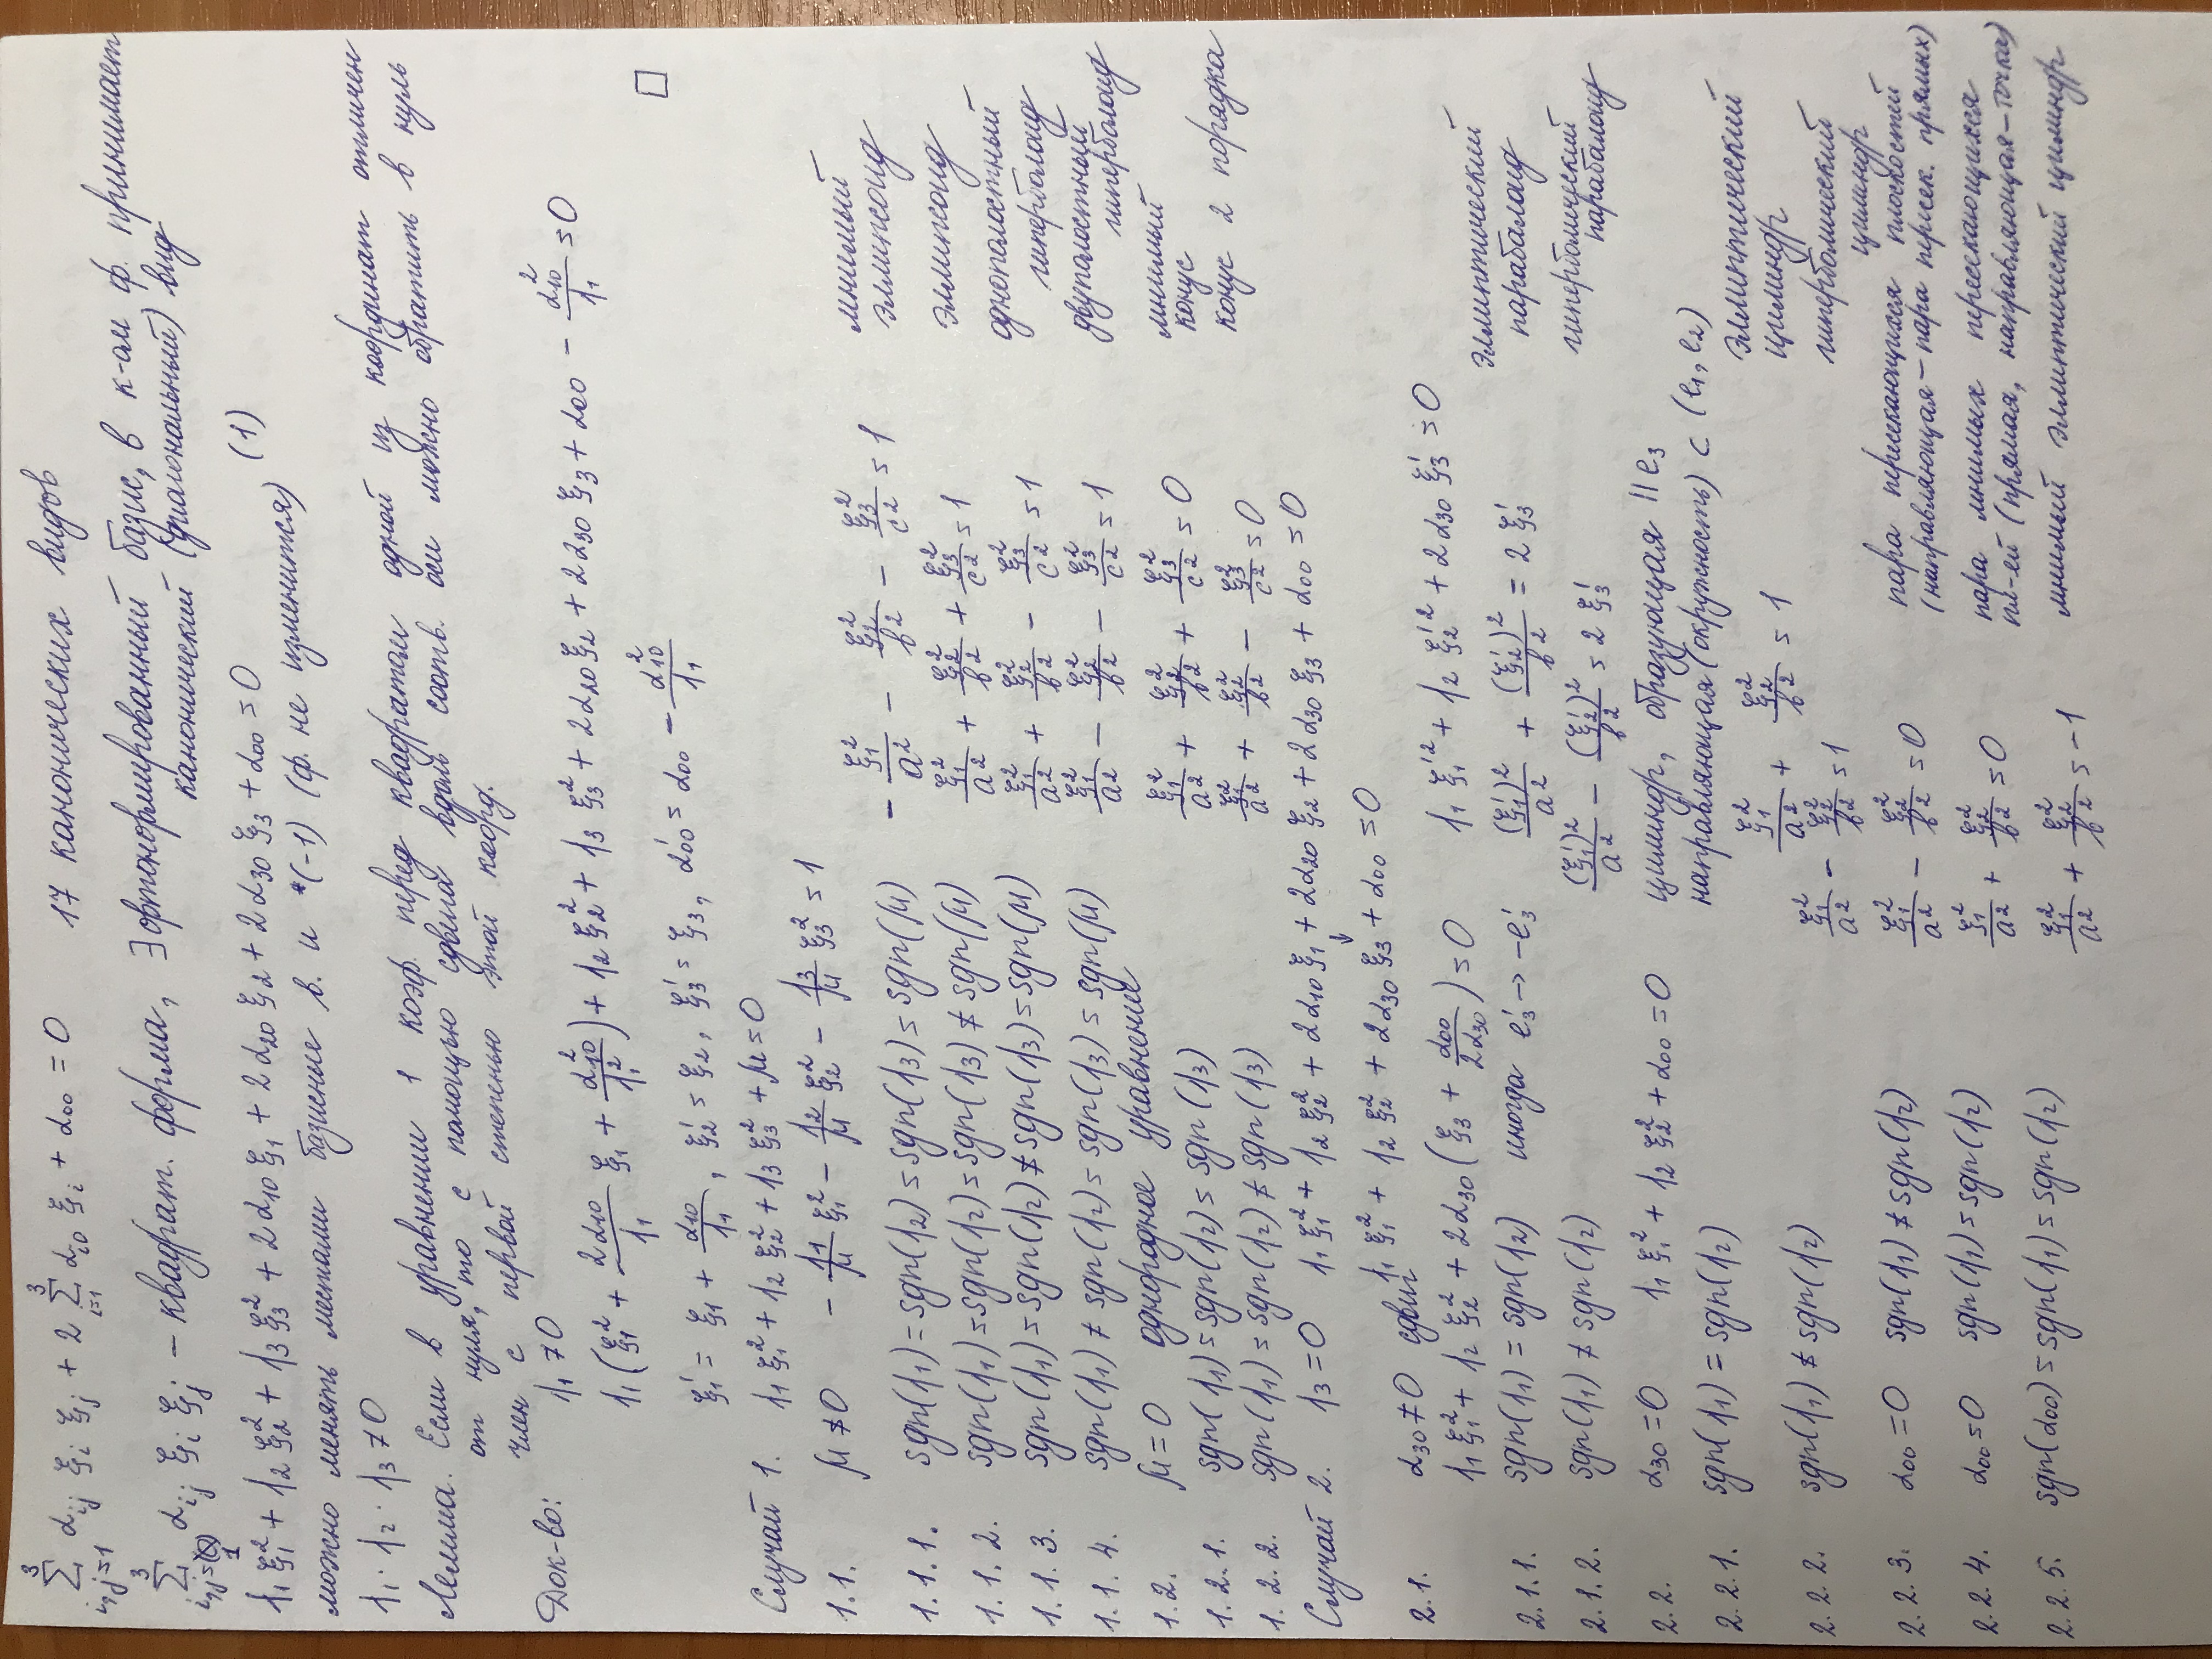 3 Σ i,j=1 α_ij ξ_i ξ_j + 2 3 Σ i=1 α_i0 ξ_i + α_00 = 0 17 канонических видов
3 Σ i,j=1 α_ij ξ_i ξ_j – квадрат. форма, ∃ ортонормированный базис, в к-ом ф. принимает
канонический (диагональный) вид
λ_1 ξ_1² + λ_2 ξ_2² + λ_3 ξ_3² + 2α_10 ξ_1 + 2α_20 ξ_2 + 2α_30 ξ_3 + α_00 = 0 (1)
можно менять местами базисные в. и *(-1) (ф. не изменится)
λ_1 · λ_2 · λ_3 ≠ 0
Лемма. Если в уравнении 1 коэф. перед квадратом одной из координат отличен
от нуля, то с помощью сдвига вдоль соотв. оси можно обратить в нуль
член с первой степенью этой коорд.
Док-во: λ_1 ≠ 0
λ_1 (ξ_1² + 2α_10/λ_1 ξ_1 + α_10²/λ_1²) + λ_2 ξ_2² + λ_3 ξ_3² + 2α_20 ξ_2 + 2α_30 ξ_3 + α_00 – α_10²/λ_1 = 0
ξ_1' = ξ_1 + α_10/λ_1, ξ_2' = ξ_2, ξ_3' = ξ_3, α_00' = α_00 – α_10²/λ_1 □
Случай 1. λ_1 ξ_1² + λ_2 ξ_2² + λ_3 ξ_3² + μ = 0
1.1. μ ≠ 0 – λ_1/μ ξ_1² – λ_2/μ ξ_2² – λ_3/μ ξ_3² = 1
1.1.1. sgn(λ_1) = sgn(λ_2) = sgn(λ_3) = sgn(μ) – ξ_1²/a² – ξ_2²/b² – ξ_3²/c² = 1 мнимый
эллипсоид
1.1.2. sgn(λ_1) = sgn(λ_2) = sgn(λ_3) ≠ sgn(μ) ξ_1²/a² + ξ_2²/b² + ξ_3²/c² = 1 эллипсоид
1.1.3. sgn(λ_1) = sgn(λ_2) ≠ sgn(λ_3) = sgn(μ) ξ_1²/a² + ξ_2²/b² – ξ_3²/c² = 1 однополостный
гиперболоид
1.1.4. sgn(λ_1) ≠ sgn(λ_2) = sgn(λ_3) = sgn(μ) ξ_1²/a² – ξ_2²/b² – ξ_3²/c² = 1 двуполостный
гиперболоид
1.2. μ = 0 однородное уравнение
1.2.1. sgn(λ_1) = sgn(λ_2) = sgn(λ_3) ξ_1²/a² + ξ_2²/b² + ξ_3²/c² = 0 мнимый
конус
1.2.2. sgn(λ_1) = sgn(λ_2) ≠ sgn(λ_3) ξ_1²/a² + ξ_2²/b² – ξ_3²/c² = 0 конус 2 порядка
Случай 2. λ_3 = 0 λ_1 ξ_1² + λ_2 ξ_2² + 2α_10 ξ_1 + 2α_20 ξ_2 + 2α_30 ξ_3 + α_00 = 0
↓
λ_1 ξ_1² + λ_2 ξ_2² + 2α_30 ξ_3 + α_00 = 0
2.1. α_30 ≠ 0 сдвиг
λ_1 ξ_1² + λ_2 ξ_2² + 2α_30 (ξ_3 + α_00/2α_30) = 0 λ_1 ξ_1'² + λ_2 ξ_2'² + 2α_30 ξ_3' = 0
2.1.1. sgn(λ_1) = sgn(λ_2) иногда e_3' → -e_3' (ξ_1')²/a² + (ξ_2')²/b² = 2 ξ_3' эллиптический
парабалоид
2.1.2. sgn(λ_1) ≠ sgn(λ_2) (ξ_1')²/a² – (ξ_2')²/b² = 2 ξ_3' гиперболический
парабалоид
2.2. α_30 = 0 λ_1 ξ_1² + λ_2 ξ_2² + α_00 = 0 цилиндр, образующая || e_3
направляющая (окружность) ⊂ (e_1, e_2)
2.2.1. sgn(λ_1) = sgn(λ_2) ξ_1²/a² + ξ_2²/b² = 1 эллиптический
цилиндр
2.2.2. sgn(λ_1) ≠ sgn(λ_2) ξ_1²/a² – ξ_2²/b² = 1 гиперболический
цилиндр
2.2.3. α_00 = 0 sgn(λ_1) ≠ sgn(λ_2) ξ_1²/a² – ξ_2²/b² = 0 пара пересекающихся плоскостей
(направляющая – пара пересек. прямых)
2.2.4. α_00 = 0 sgn(λ_1) = sgn(λ_2) ξ_1²/a² + ξ_2²/b² = 0 пара мнимых пересекающихся
пл-ей (прямая, направляющая – точка)
2.2.5. sgn(α_00) = sgn(λ_1) = sgn(λ_2) ξ_1²/a² + ξ_2²/b² = -1 мнимый эллиптический цилиндр